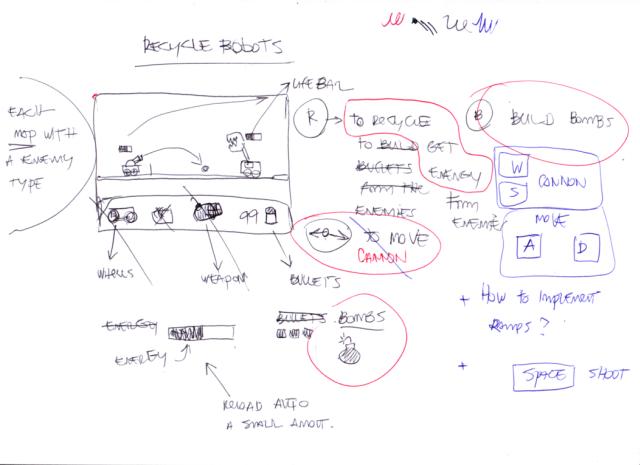 RECYCLE BOBOTS
EACH
MAP WITH
A ENEMY
TYPE
LIFE BAR
R
TO RECYCLE
TO BUILD GET
BULLETS ENERGY
FORM THE FROM
ENEMIES ENEMIE
B
BUILD BOMBS
W
S
CANNON
MOVE
A D
TO MOVE
CANNON
99
WHEELS
WEAPON
BULLETS
ENERGY
ENERGY
RELOAD AUTO
A SMALL AMOUT.
BULLETS BOMBS
+ HOW TO IMPLEMENT
RAMPS?
+ SPACE SHOOT